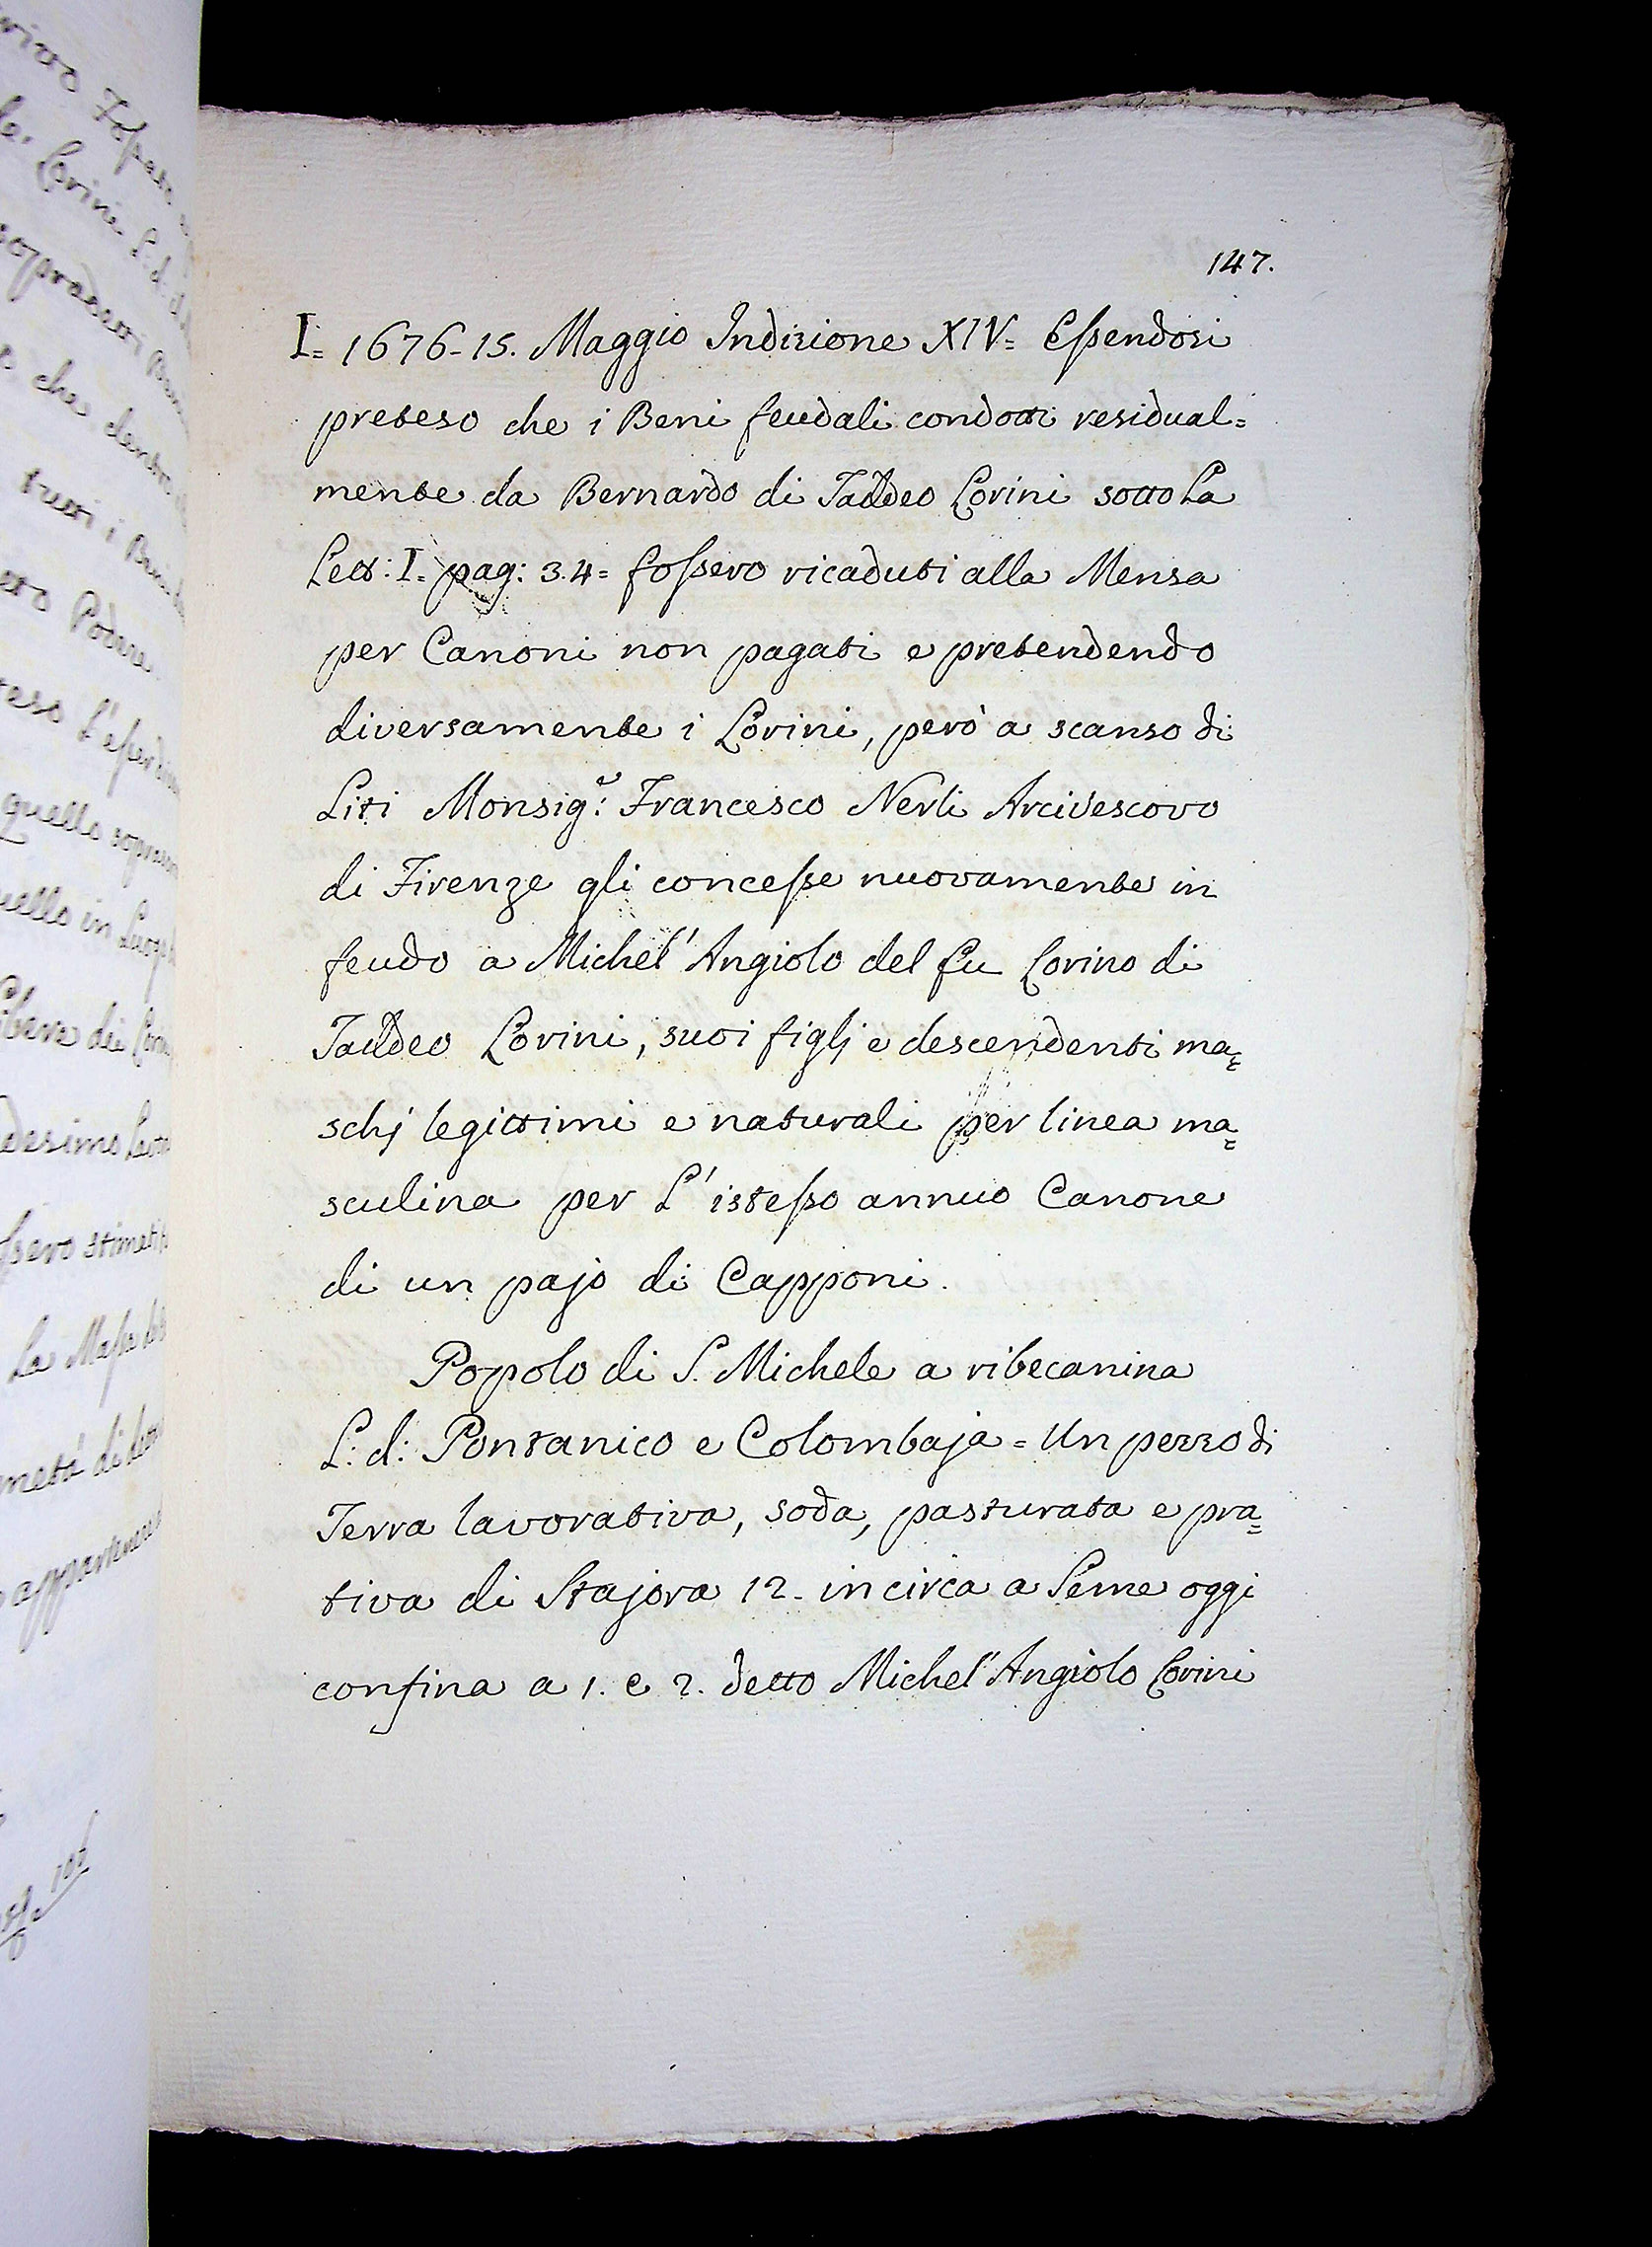 147.
I= 1676-15. Maggio Indizione XIV= Essendosi
preteso che i Beni feudali condotti residual=
mente da Bernardo di Taddeo Lorini sotto La
Lett: I= pag: 34= fossero ricaduti alla Mensa
per Canoni non pagati e pretendendo
diversamente i Lorini, però a scanso di
Liti Monsig.r Francesco Nerli Arcivescovo
di Firenze gli concesse nuovamente in
feudo a Michel' Angiolo del fu Lorino di
Taddeo Lorini, suoi figlj e descendenti ma=
schj legittimi e naturali per linea ma=
sculina per L' istesso annuo Canone
di un pajo di Capponi.
Popolo di S. Michele a ribecanina
L: d: Pontanico e Colombaja = Un pezzo di
Terra lavorativa, soda, pasturata e pra=
tiva di Stajora 12. in circa a Seme oggi
confina a 1. e 2. detto Michel' Angiolo Lorini